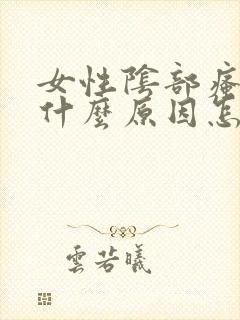 女性陰部瘙
什麼原因怎
雲若曦